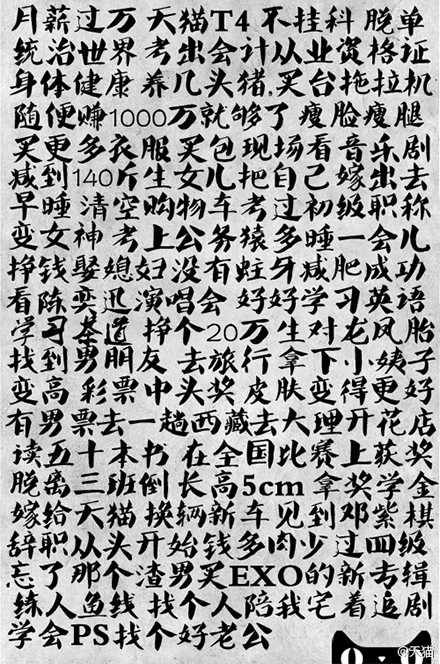 月薪过万 天猫T4 不挂科 脱单
统治世界 考出会计从业资格证
身体健康 养几头猪,买台拖拉机
随便赚1000万就够了 瘦脸瘦腿
买更多衣服买包现场看音乐剧
减到140斤生女儿把自己嫁出去
早睡 清空购物车考过初级职称
变女神 考上公务猿多睡一会儿
挣钱娶媳妇没有蛀牙减肥成功
看陈奕迅演唱会 好好学习英语
学习茶道 挣个20万生对龙凤胎
找到男朋友 去旅行拿下小姨子
变高 彩票中头奖 皮肤变得更好
有男票去一趟西藏去大理开花店
读五十本书 在全国比赛上获奖
脱离三班倒 长高5cm 拿奖学金
嫁给天猫换辆新车见到邓紫棋
辞职从头开始钱多肉少过四级
忘了那个渣男买EXO的新专辑
练人鱼线 找个人陪我宅着追剧
学会PS找个好老公
@天猫